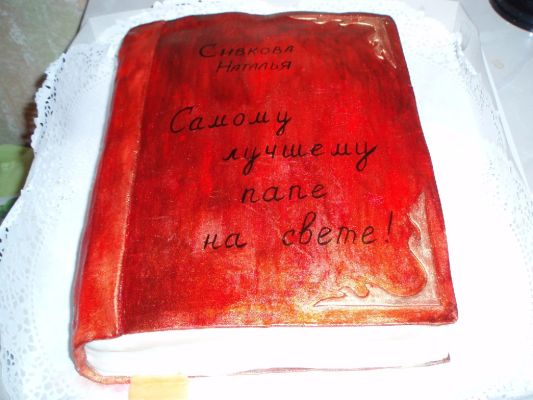 Сивкова
Наталья
Самому
лучшему
папе
на свете!